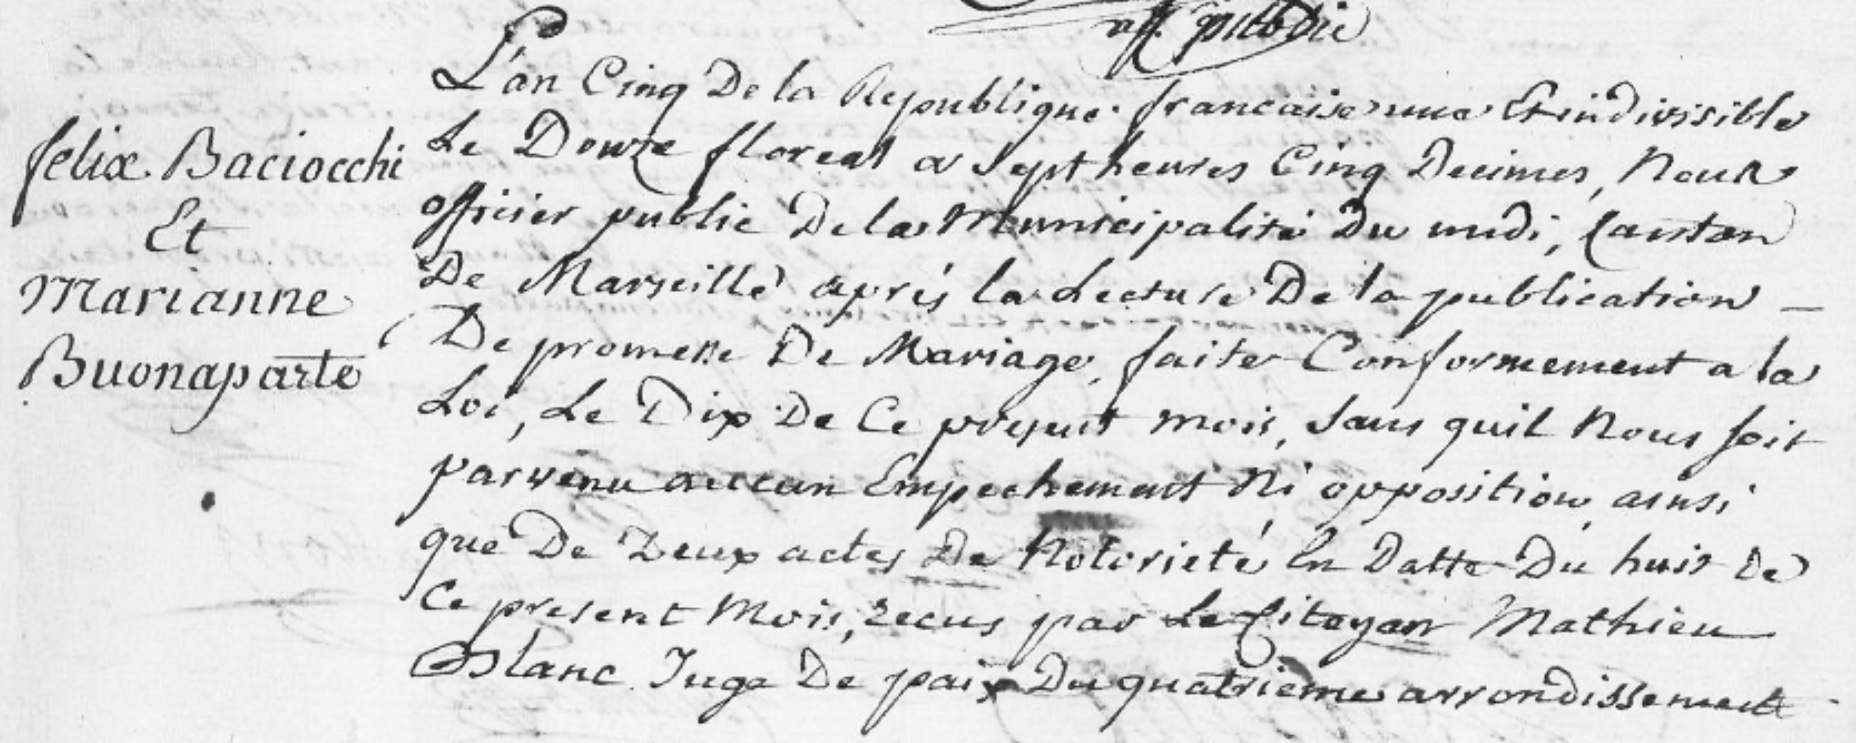 off. public
felix Baciocchi
Et
Marianne
Buonaparte
L'an Cinq De la Republique francaise une Et indivisible
Le Douze floreal a Sept heures Cinq Decimes, Nous
officier public De la Municipalité Du midi, Canton
De Marseille aprés la Lecture De la publication -
De promesse De Mariage, faite Conformement a la
Loi, Le Dix De Ce present mois, Sans quil Nous soit
parvenu aucun Empechement Ni opposition, ainsi
que De Deux actes De Notorieté En Datte Du huit De
Ce present Mois, recus par Le Citoyen Mathieu
Blanc Juge De paix Du quatrieme arrondissement